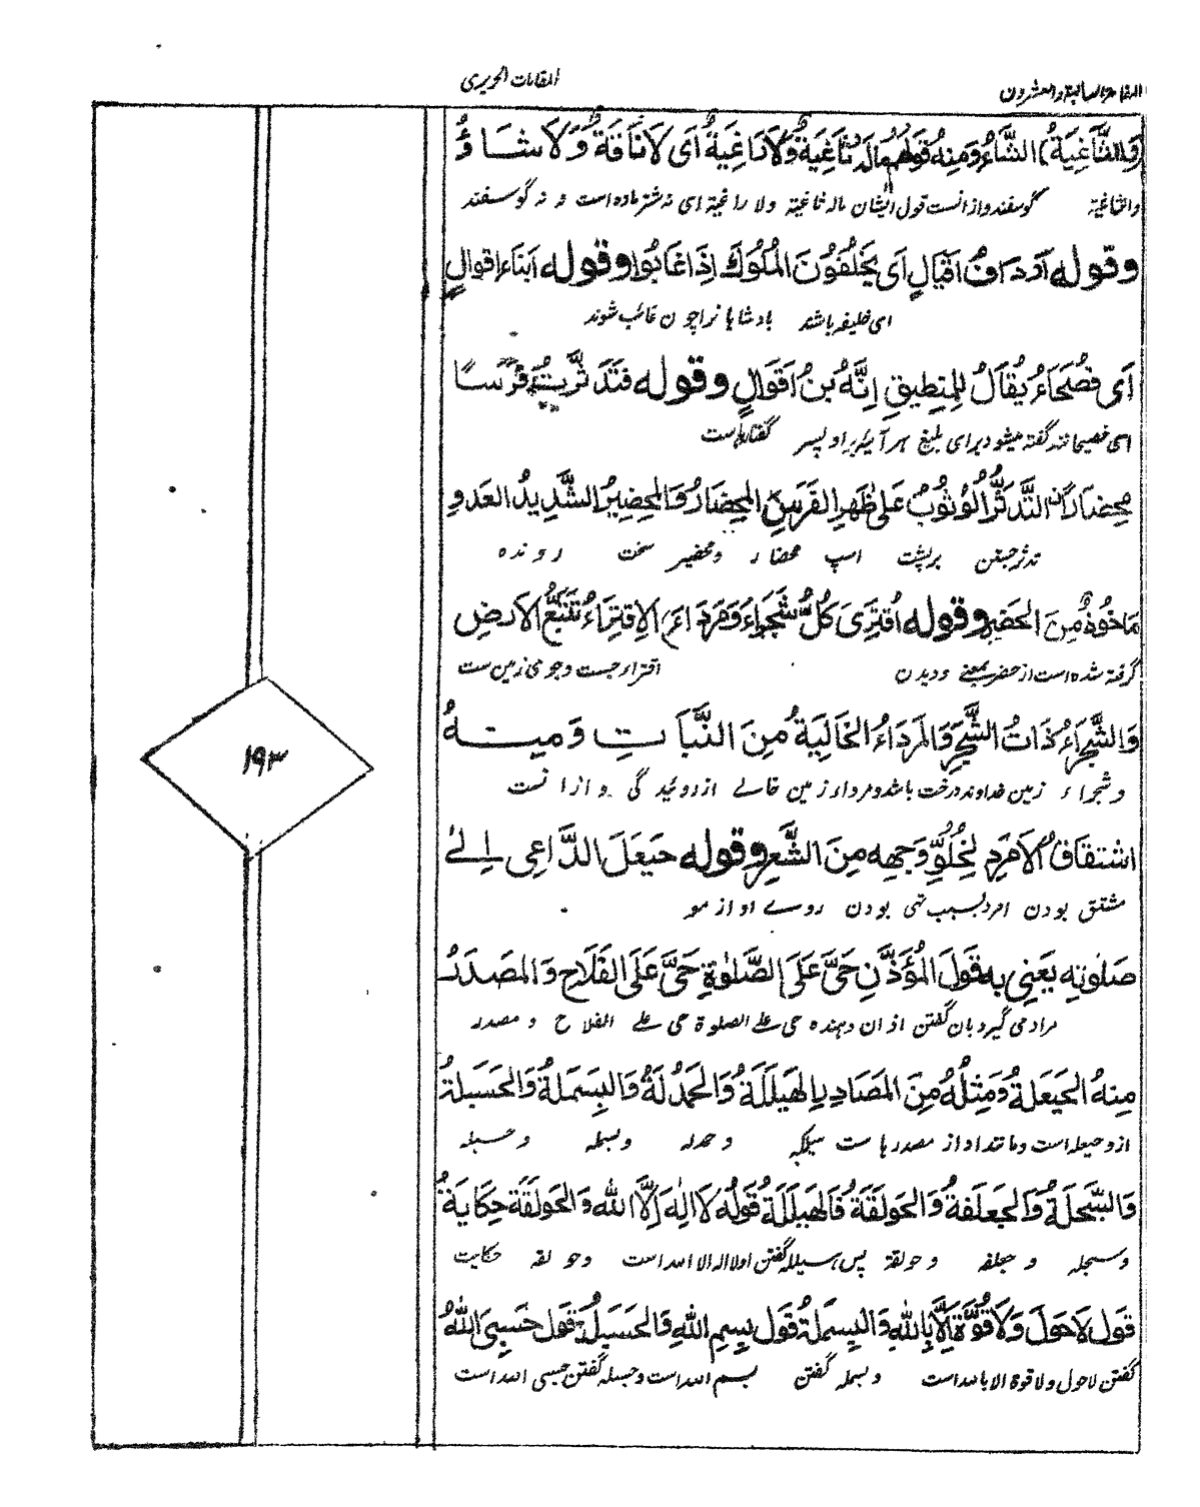 المقامة السابعة والعشرون
المقامات الحريرى
(وَالثَّاغِيَةُ) الشَّاءُ وَمِنْهُ قَوْلُهُمْ مَالَهُ ثَاغِيَةٌ وَّلَا رَاغِيَةٌ اَى لَا نَاقَةٌ وَّلَا شَاءٌ
والثاغية گوسفند وازانست قول ایشان ماله ثاغیة ولا راغیة ای نه شتر ماده است و نه گوسفند
وقوله اَرْدَافُ اَقْيَالٍ اَى يَخْلُفُوْنَ الْمُلُوْكَ اِذَا غَابُوْا وقوله اَبْنَاءُ اَقْوَالٍ
ای خلیفه باشند بادشاهانرا چون غائب شوند
اَى فُصَحَاءُ يُقَالُ لِلْمِنْطِيْقِ اِنَّهُ بْنُ اَقْوَالٍ وقوله فَتَدَثَّرْتُ فَرَسًا
ای فصیحانند گفته میشود برای بلیغ هر آئینه او پسر گفتارهاست
مِحْضَارًا التَّدَثُّرُ الْوُثُوْبُ عَلٰى ظَهْرِ الْفَرَسِ وَالْمِحْضَارُ وَالْمِحْضِيْرُ الشَّدِيْدُ الْعَدْوِ
تدثر جستن بر پشت اسپ محضار و محضیر سخت رونده
مَاخُوْذٌ مِنَ الْحُضْرِ وقوله اَقْتَرِىْ كُلَّ شَجْرَاءَ وَمَرْدَاءَ الْاِقْتِرَاءُ تَتَبُّعُ الْاَرْضِ
گرفته شده است از حضر بمعنی دویدن اقتراء جست و جوی زمین ست
وَالشَّجْرَاءُ ذَاتُ الشَّجَرِ وَالْمَرْدَاءُ الْخَالِيَةُ مِنَ النَّبَاتِ وَمِنْهُ
و شجراء زمین خداوند درخت باشد و مرداء زمین خالی از روئیدگی و ازانست
اِشْتِقَاقُ الْاَمْرَدِ لِخُلُوِّ وَجْهِهِ مِنَ الشَّعْرِ وقوله حَيْعَلَ الدَّاعِى اِلٰى
مشتق بودن امرد بسبب تهی بودن روے او از مو
صَلٰوتِهِ يَعْنِى بِهِ قَوْلَ الْمُؤَذِّنِ حَىَّ عَلَى الصَّلٰوةِ حَىَّ عَلَى الْفَلَاحِ وَالْمَصْدَرُ
مراد می گیرد بان گفتن اذان دهنده حی علی الصلوة حی علی الفلاح و مصدر
مِنْهُ الْحَيْعَلَةُ وَمِثْلُهُ مِنَ الْمَصَادِرِ الْهَيْلَلَةُ وَالْحَمْدَلَةُ وَالْبَسْمَلَةُ وَالْحَسْبَلَةُ
ازو حیعله است و مانند او از مصدرها ست هیلله و حمدله و بسمله و حسبله
وَالسَّبْحَلَةُ وَالْجَعْلَفَةُ وَالْحَوْلَقَةُ فَالْهَيْلَلَةُ قَوْلُهُ لَا اِلٰهَ اِلَّا اللهُ وَالْحَوْلَقَةُ حِكَايَةُ
و سبحله و جعلفه و حولقة پس هیلله گفتن اولا اله الا الله است و حولقه حکایت
قَوْلِ لَا حَوْلَ وَلَا قُوَّةَ اِلَّا بِاللهِ وَالْبَسْمَلَةُ قَوْلُ بِسْمِ اللهِ وَالْحَسْبَلَةُ قَوْلُ حَسْبِىَ اللهُ
گفتن لا حول ولا قوة الا بالله است و بسمله گفتن بسم الله است و حسبله گفتن حسبی الله است
۱۹۳